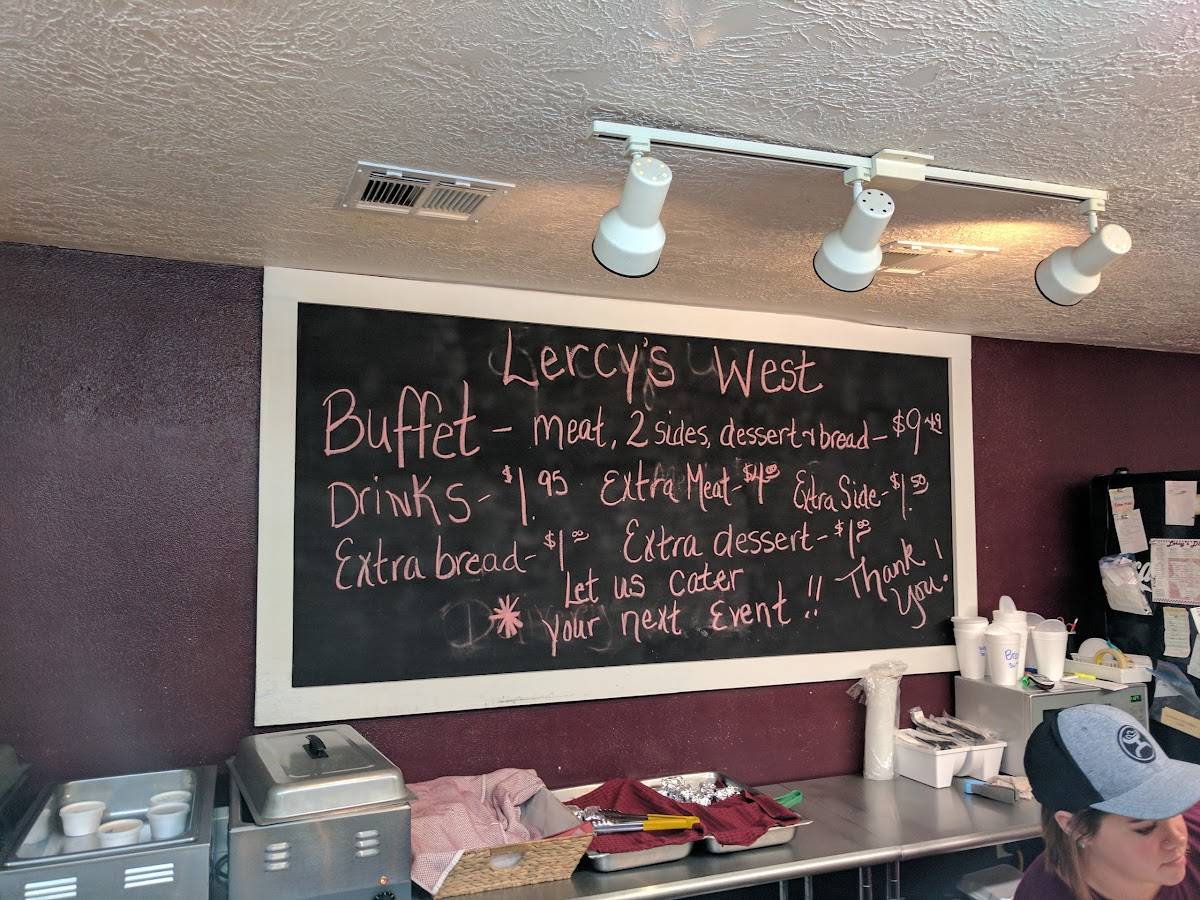 Lercy's West
Buffet - meat, 2 sides, dessert & bread - $9.49
Drinks - $1.95 Extra Meat - $4.00 Extra Side - $1.50
Extra bread - $1.00 Extra dessert - $1.00
Let us cater
* your next Event !! Thank
You!